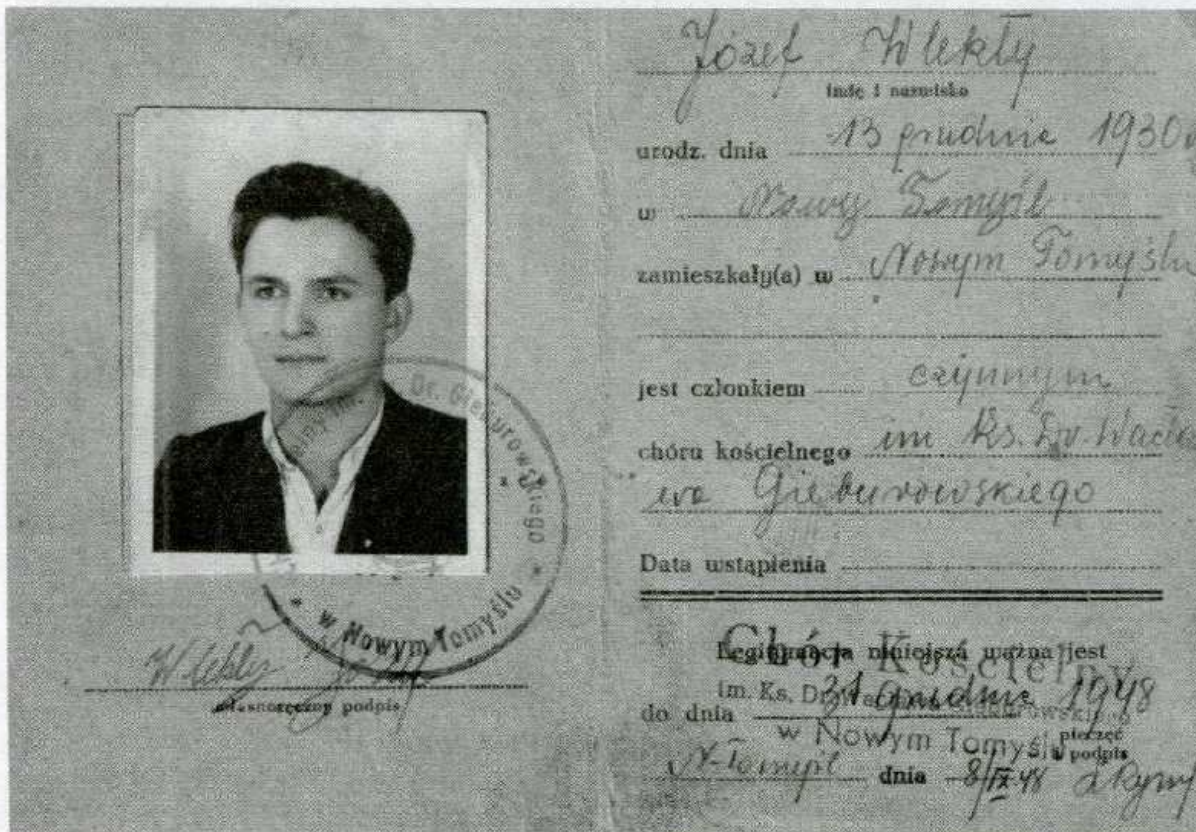 Józef Wlekły
imię i nazwisko
urodz. dnia 13 grudnia 1930
w Nowy Tomyśl
zamieszkały(a) w Nowym Tomyślu
jest członkiem czynnym
chóru kościelnego im Ks. Dr. Wacła
wa Gieburowskiego
Data wstąpienia
Legitymacja niniejszą ważna jest
do dnia 31 grudnia 1948
pieczęć
podpis
N-Tomyśl dnia 8/IX 48
Chór Kościelny
im. Ks. Dr.
w Nowym Tomyślu
Dr. Gieburowskiego
* w Nowym Tomyślu *
Wlekły Józef
własnoręczny podpis